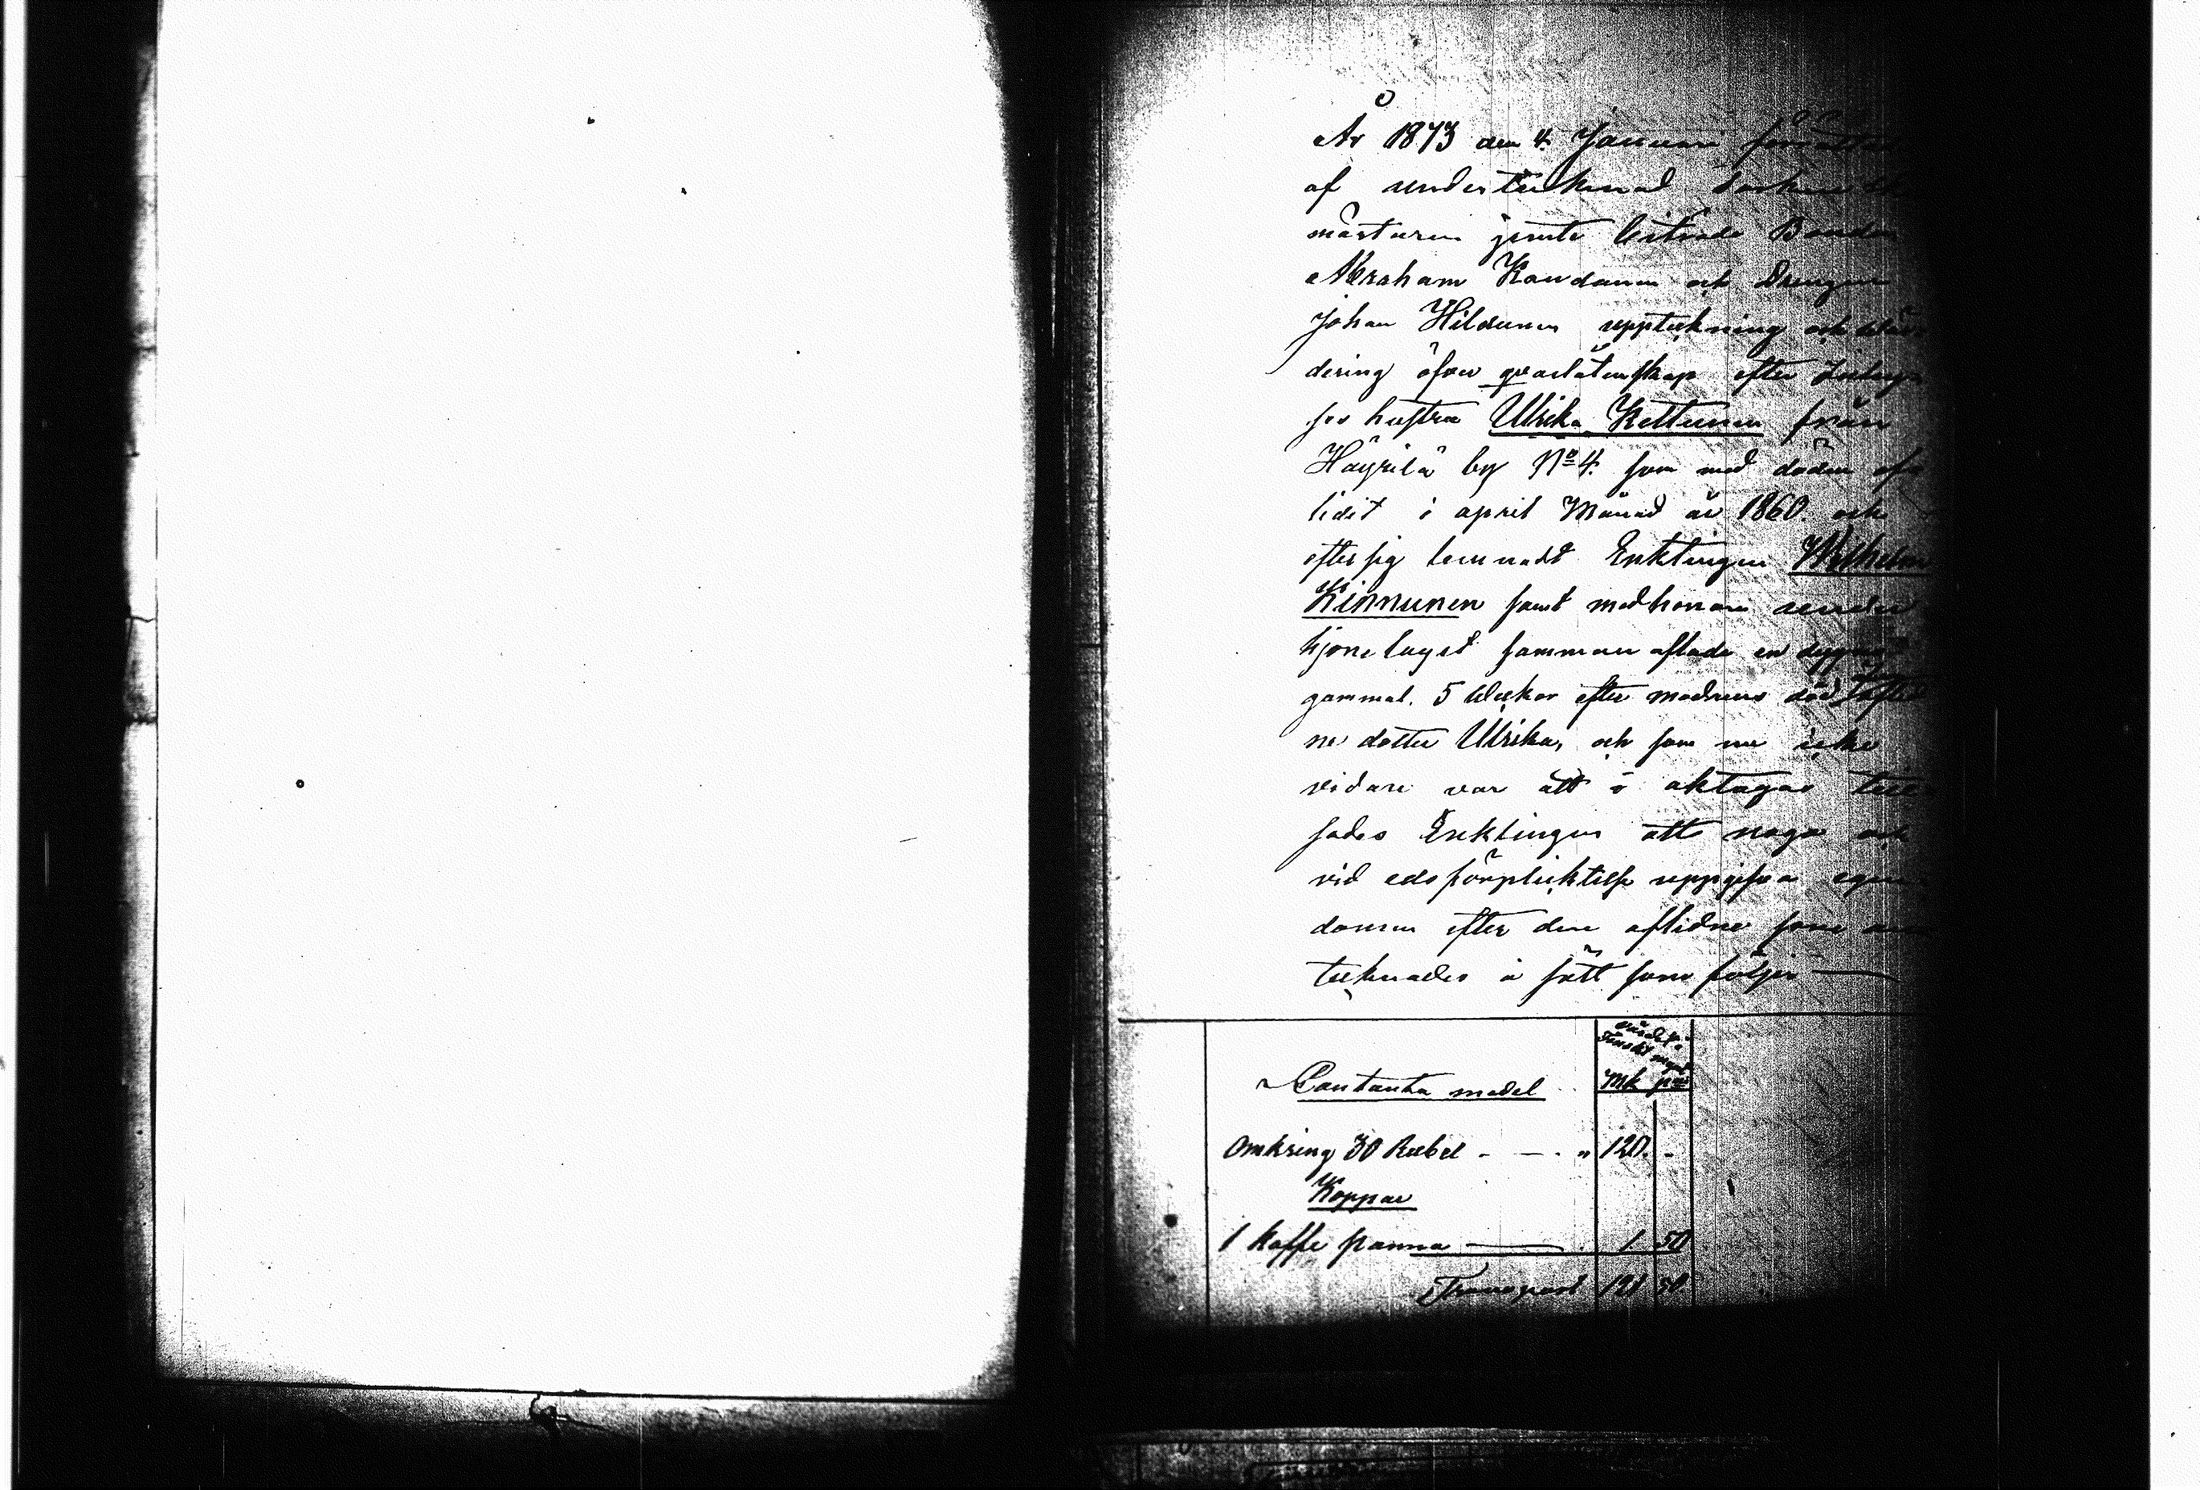 År 1873 den 4. Januari förrättades
af undertecknad
mästaren jemte biträde Bonden
Abraham Kondanen och Drengen
Johan Hildunen uppteckning och wär
dering öfver qvarlåtenskap efter Inhyses
hustru Ulrika Kettunen från
Häyrilä by No 4. som med döden af
lidit i april Månad år 1860. och
efter sig lemnadt Enklingen Wilhelm
Kinnunen samt med honom under
hjonelaget samman aflade en
gammal. 5 Weckor efter modrens död aflid
ne dotter Ulrika, och som nu icke
vidare var att i akttagas
sades Enklingen att noga och
vid edsförpliktelse uppgifva egen
domen efter den aflidne som an
tecknades i sätt som följer
värdet i
Finskt mynt
Contanta medel Mk pni
Omkring 30 Rubel - - - " 120. -
Koppar
1 kaffe panna 1 50
Transport 121 50